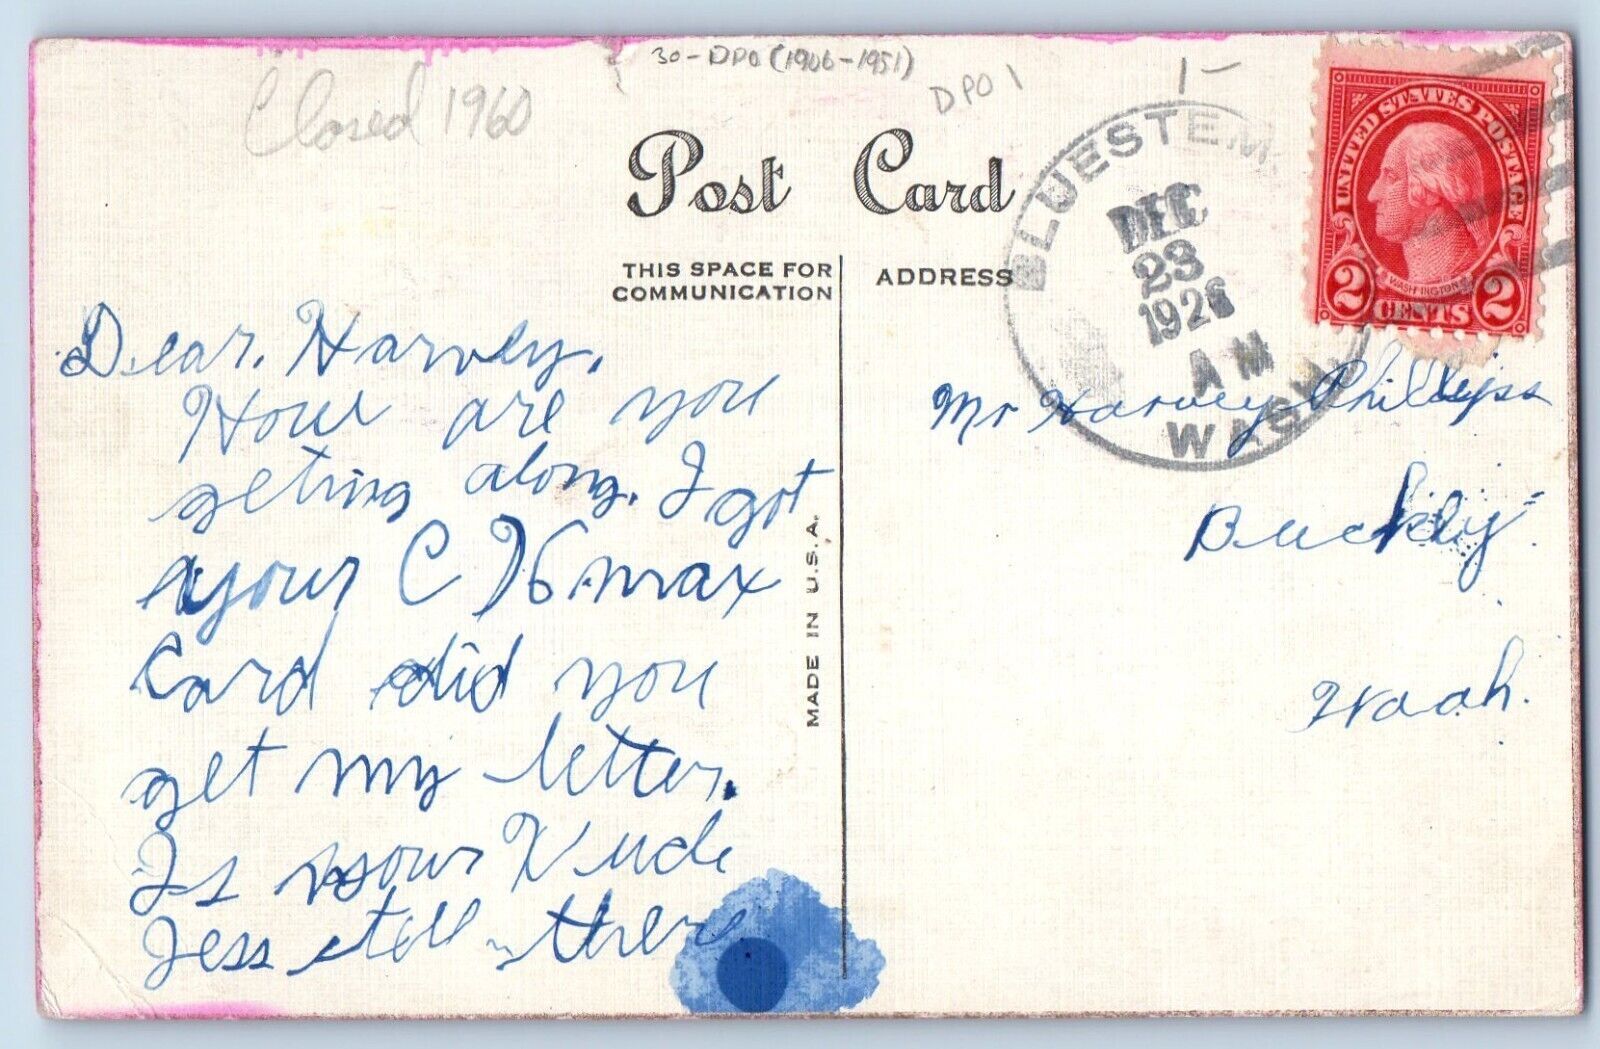 Closed 1960
30-DPO (1906-1951)
DPO 1
1-
Post Card
THIS SPACE FOR
COMMUNICATION
ADDRESS
BLUESTEM,
DEC
23
1926
AM
WASH.
UNITED STATES POSTAGE
WASHINGTON
2 CENTS 2
Dear, Harvey,
How are you
geting along. I got
your C X max
Card did you
get my letter.
Is your
Jess still there
MADE IN U.S.A.
Mr Harvey Phillipss
Buckely
Waah.